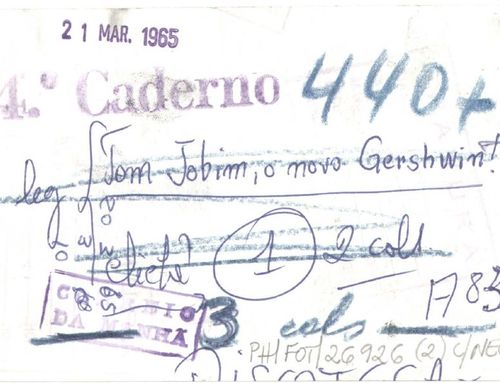 21 MAR. 1965
4.º Caderno 440+
leg Tom Jobim, o novo Gershwin
cliché 1 2 cols.
CORREIO
DA MANHÃ
3 cols A83
PH/FOT/26926(2) C/NE